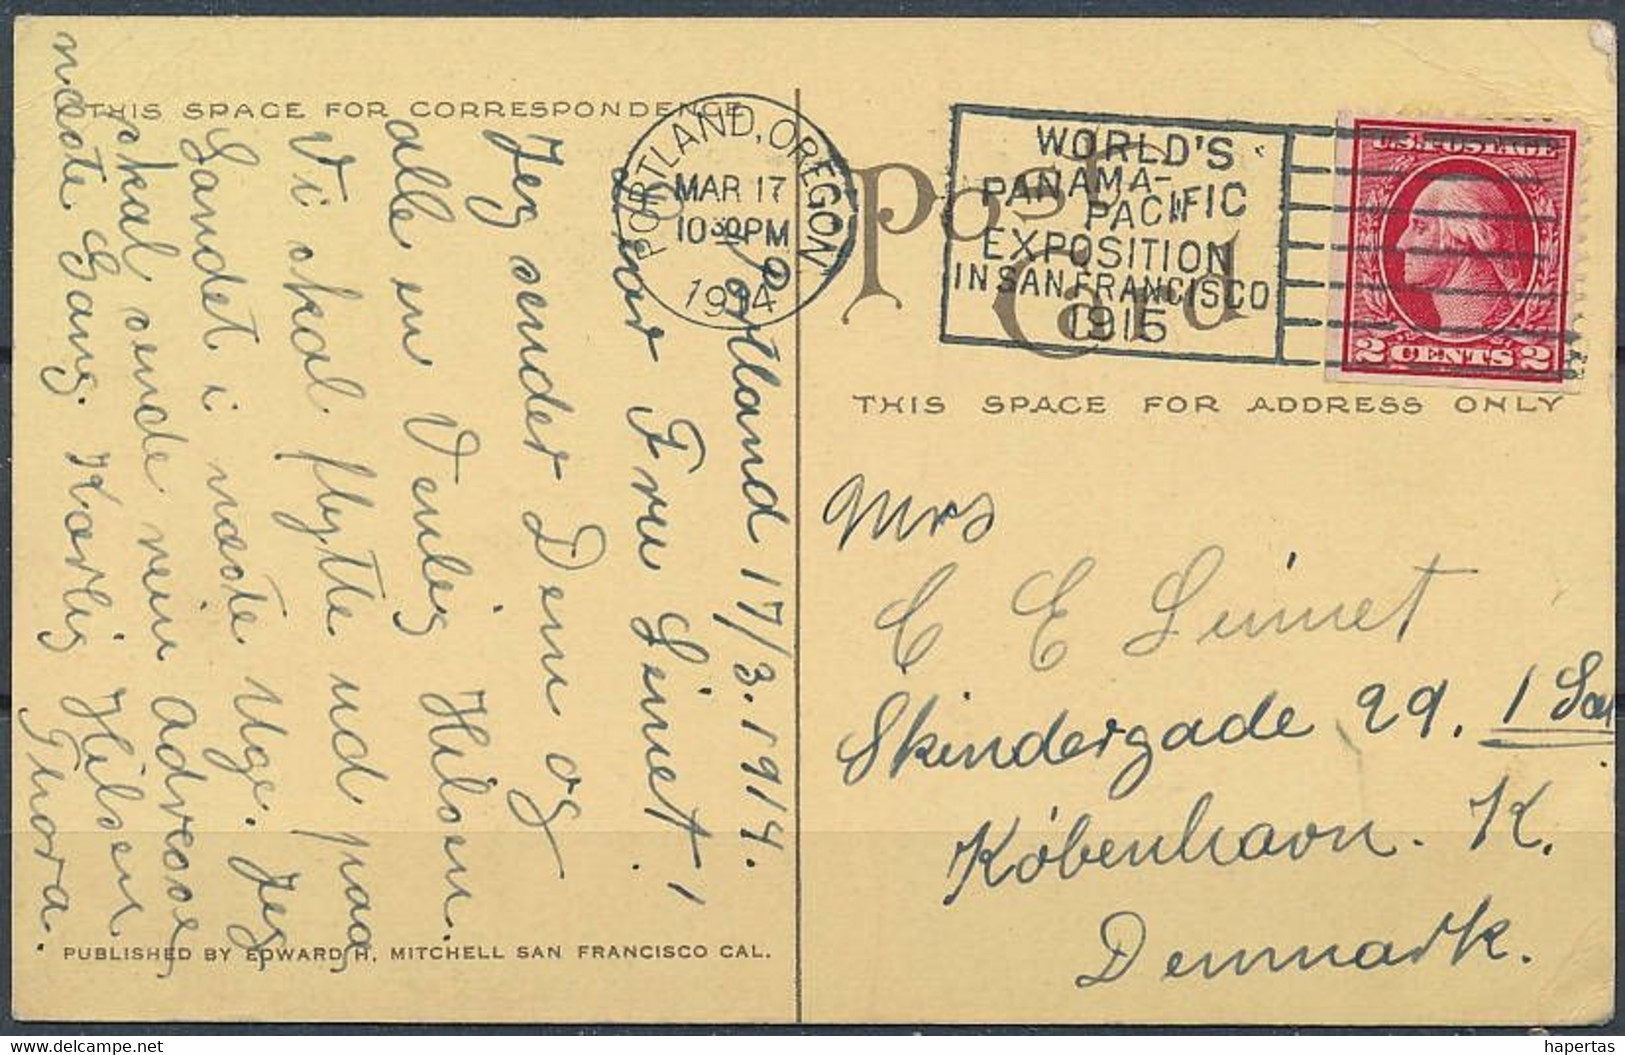 THIS SPACE FOR CORRESPONDENCE
Portland 17/3.1914.
Kær Fru Linnet!
Jeg sender Dem og
alle en Venlig Hilsen.
Vi skal flytte ud paa
Landet i næste Uge. Jeg
skal sende min adresse
næste Gang. Kærlig Hilsen
Thora.
PUBLISHED BY EDWARD H. MITCHELL SAN FRANCISCO CAL.
PORTLAND, OREGON
MAR 17
10 30 PM
1914
WORLD'S
PANAMA-
PACIFIC
EXPOSITION
IN SAN FRANCISCO
1915
U.S. POSTAGE
2 CENTS 2
Post
Card
THIS SPACE FOR ADDRESS ONLY
Mrs
C E Linnet
Skindergade 29. 1 Sal
København. K.
Denmark.
delcampe.net
hapertas